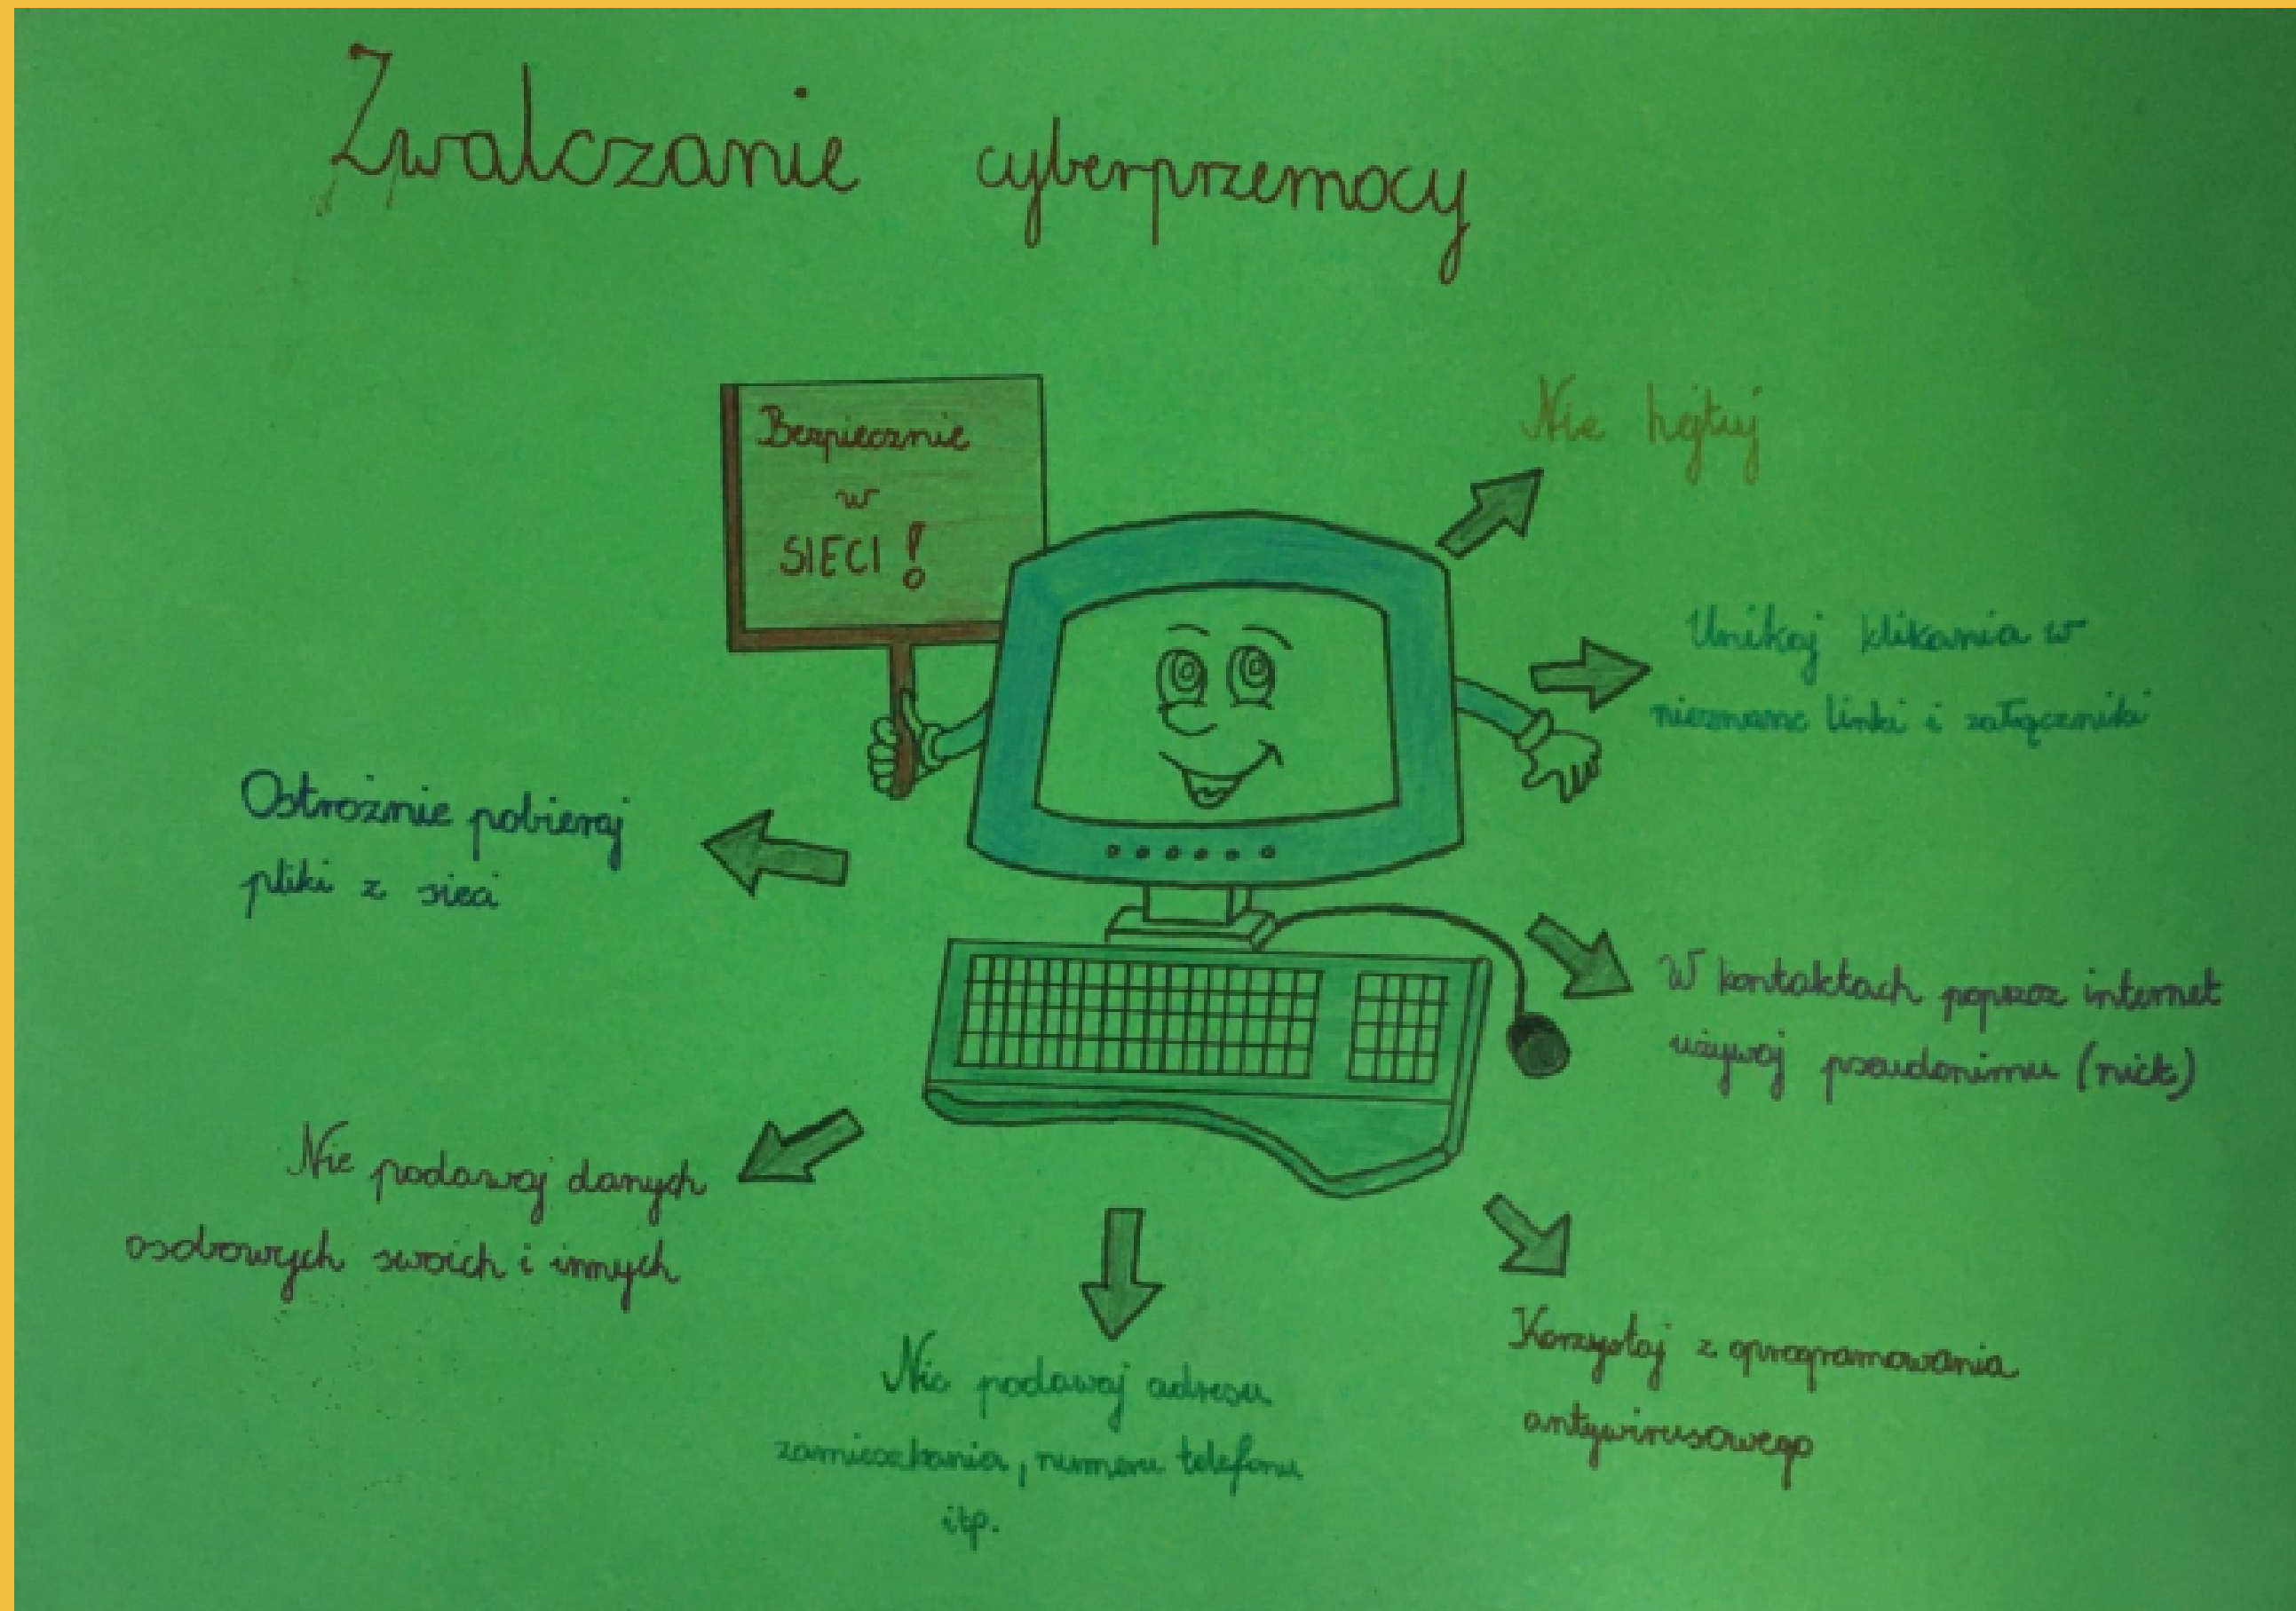 Zwalczanie cyberprzemocy
Bezpiecznie
w
SIECI!
Nie hejtuj
Unikaj klikania w
nieznane linki i załączniki
Ostrożnie pobieraj
pliki z sieci
W kontaktach poprzez internet
używaj pseudonimu (nick)
Nie podawaj danych
osobowych swoich i innych
Nie podawaj adresu
zamieszkania, numeru telefonu
itp.
Korzystaj z oprogramowania
antywirusowego